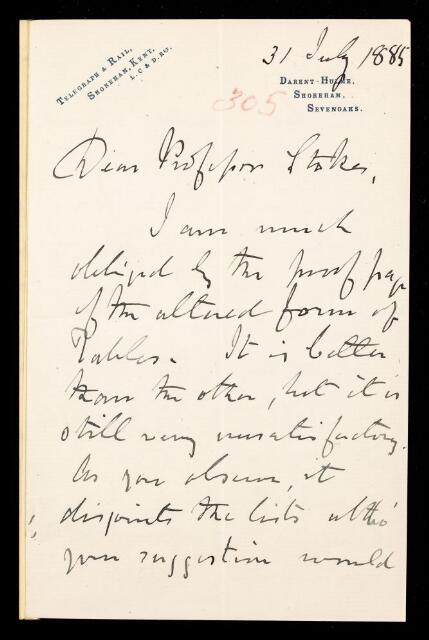 TELEGRAPH & RAIL,
SHOREHAM, KENT,
L. C & D. RY.
31 July 1885
DARENT-HULME,
SHOREHAM,
SEVENOAKS.
305
Dear Professor Stokes,
I am much
obliged by the proof page
of the altered form of
Tables. It is better
than the other, but it is
still very unsatisfactory.
As you observe, it
disjoints the lists altho'
your suggestion would